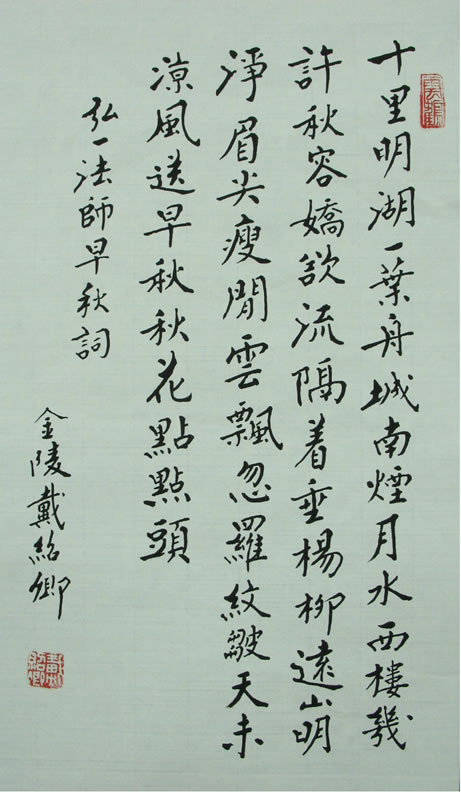 十里明湖一葉舟城南煙月水西樓幾
許秋容嬌欲流隔着垂楊柳遠山明
淨眉尖瘦閒雲飄忽羅紋皺天末
涼風送早秋秋花點點頭
弘一法師早秋詞
金陵戴紹卿